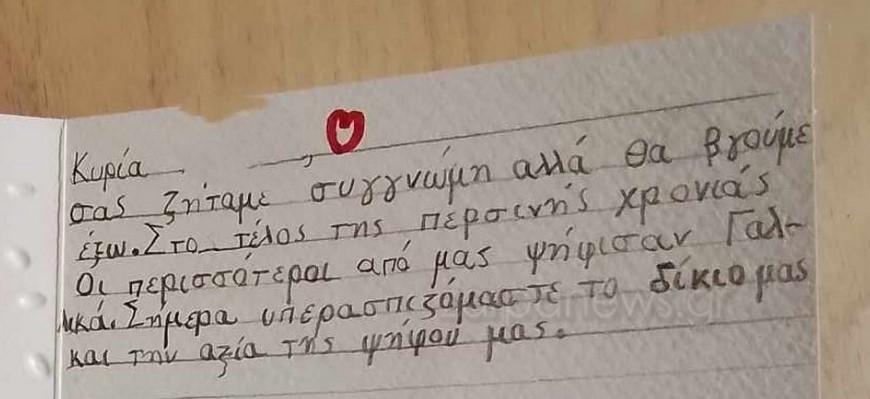 Κυρία ,
σας ζήταμε συγγνώμη αλλά θα βγούμε
έξω. Στο τέλος της περσινής χρονιάς
Οι περισσότεροι από μας ψήφισαν Γαλ-
λικά. Σήμερα υπερασπιζόμαστε το δίκιο μας
και την αξία της ψήφου μας.